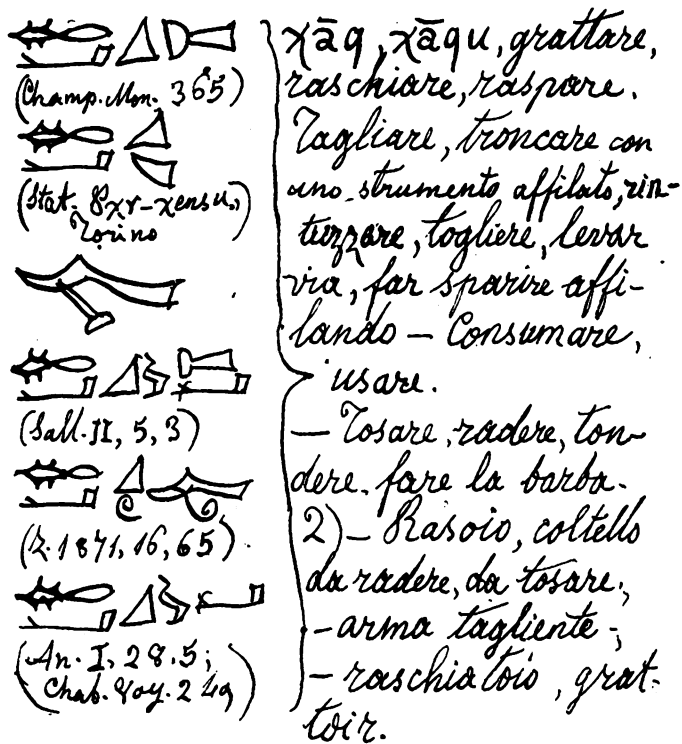 (Champ. Mon. 365)
(Stat. Torino)
(Sall. II, 5, 3)
(Z. 1871, 16, 65)
(An. I, 28. 5;
Chab. Voy. 249)
χāq, χāqu, grattare,
raschiare, raspare.
Tagliare, troncare con
uno strumento affilato, rin-
tuzzare, togliere, levar
via, far sparire affi-
lando — Consumare,
usare.
— Tosare, radere, ton-
dere. fare la barba.
2) — Rasoio, coltello
da radere, da tosare;
— arma tagliente;
— raschiatoio, grat-
toir.